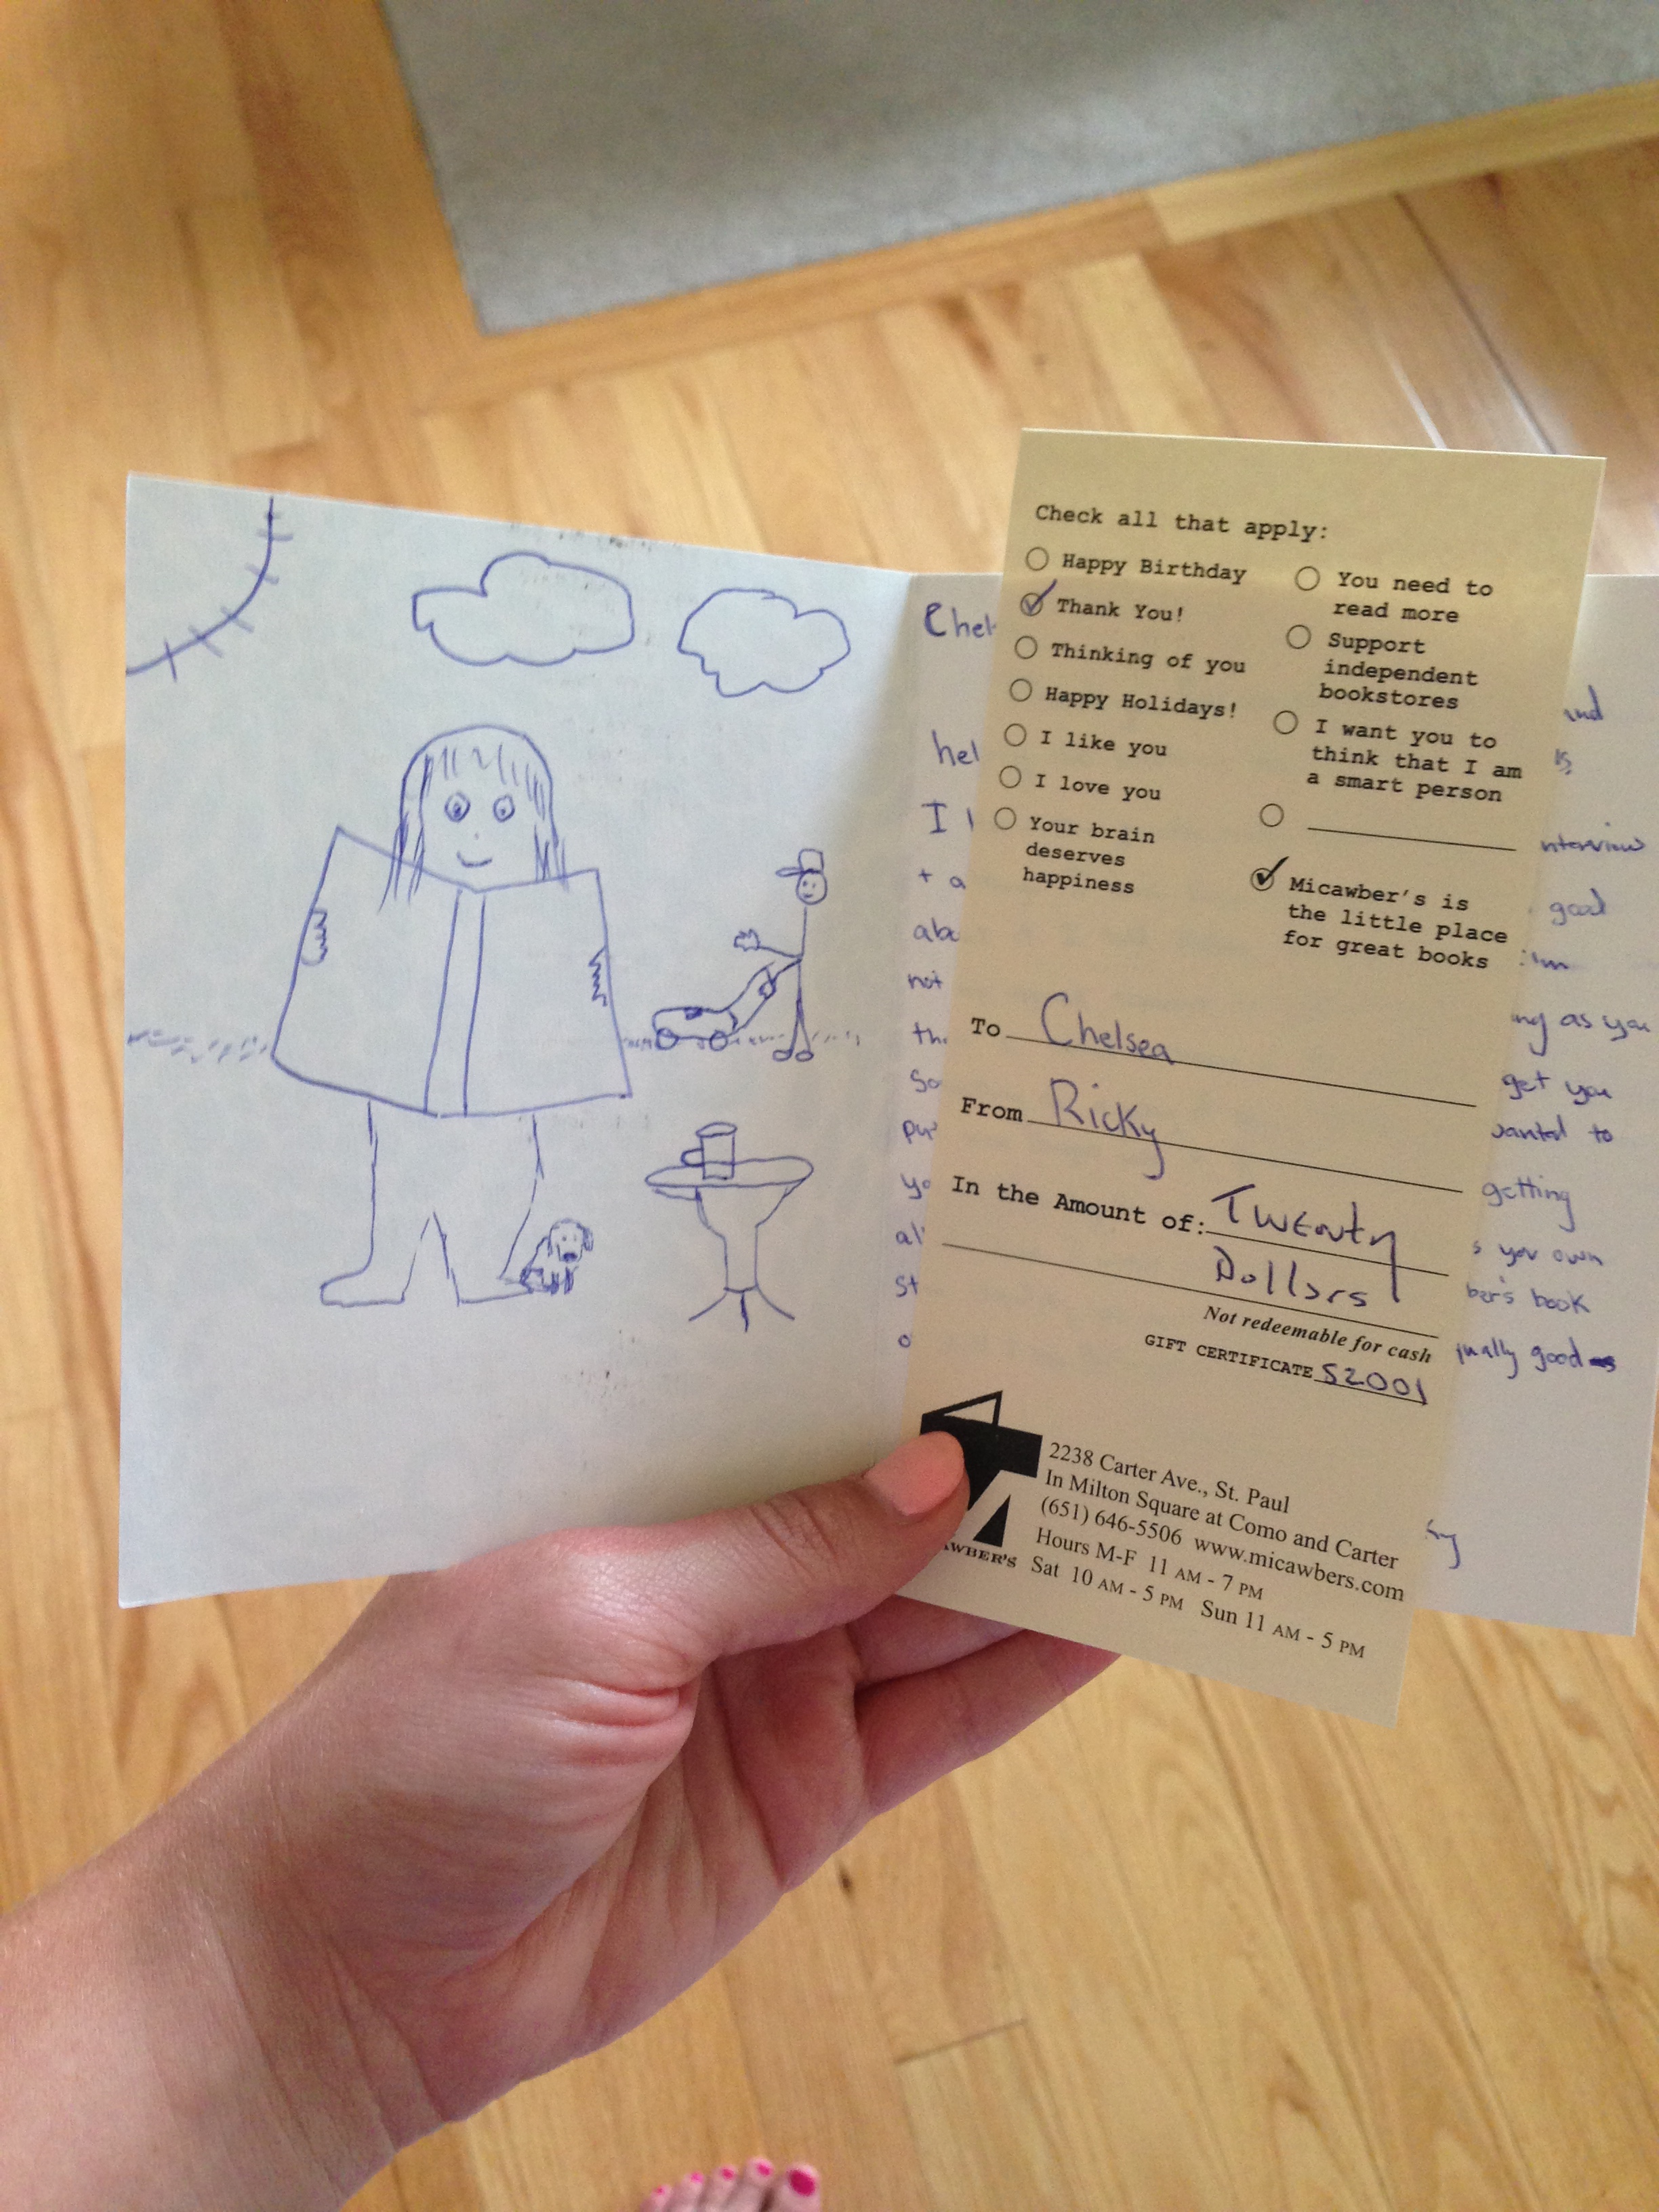 Check all that apply:
Happy Birthday
Thank You!
Thinking of you
Happy Holidays!
I like you
I love you
Your brain
deserves
happiness
You need to
read more
Support
independent
bookstores
I want you to
think that I am
a smart person
Micawber's is
the little place
for great books
To Chelsea
From Ricky
In the Amount of: Twenty
Dollars
Not redeemable for cash
GIFT CERTIFICATE 52001
AWBER'S
2238 Carter Ave., St. Paul
In Milton Square at Como and Carter
(651) 646-5506 www.micawbers.com
Hours M-F 11 AM - 7 PM
Sat 10 AM - 5 PM Sun 11 AM - 5 PM
Chel
hel
I
+ a
not
So
st
nterview
good
ing as you
get you
wanted to
getting
s your own
ber's book
qually good